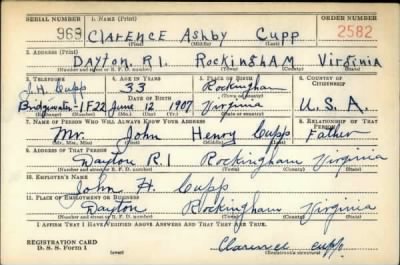 SERIAL NUMBER 1. NAME (Print) ORDER NUMBER
969 CLARENCE ASHBY CUPP 2582
(First) (Middle) (Last)
2. ADDRESS (Print)
DAYTON, R1. ROCKINGHAM VIRGINIA
(Number and street or R. F. D. number) (Town) (County) (State)
3. TELEPHONE 4. AGE IN YEARS 5. PLACE OF BIRTH 6. COUNTRY OF CITIZENSHIP
J.H. Cupp 33 Rockingham
DATE OF BIRTH (Town or county)
Bridgewater-1F22 June 12 1907 Virginia U.S.A.
(Exchange) (Number) (Mo.) (Day) (Yr.) (State or country)
7. NAME OF PERSON WHO WILL ALWAYS KNOW YOUR ADDRESS 8. RELATIONSHIP OF THAT PERSON
Mr. John Henry Cupp Father
(Mr., Mrs., Miss) (First) (Middle) (Last)
9. ADDRESS OF THAT PERSON
Dayton R.1 Rockingham Virginia
(Number and street or R. F. D. number) (Town) (County) (State)
10. EMPLOYER'S NAME
John H. Cupp
11. PLACE OF EMPLOYMENT OR BUSINESS
Dayton Rockingham Virginia
(Number and street or R. F. D. number) (Town) (County) (State)
I AFFIRM THAT I HAVE VERIFIED ABOVE ANSWERS AND THAT THEY ARE TRUE.
REGISTRATION CARD
D. S. S. Form 1 (over) Clarence Cupp
(Registrant's signature)